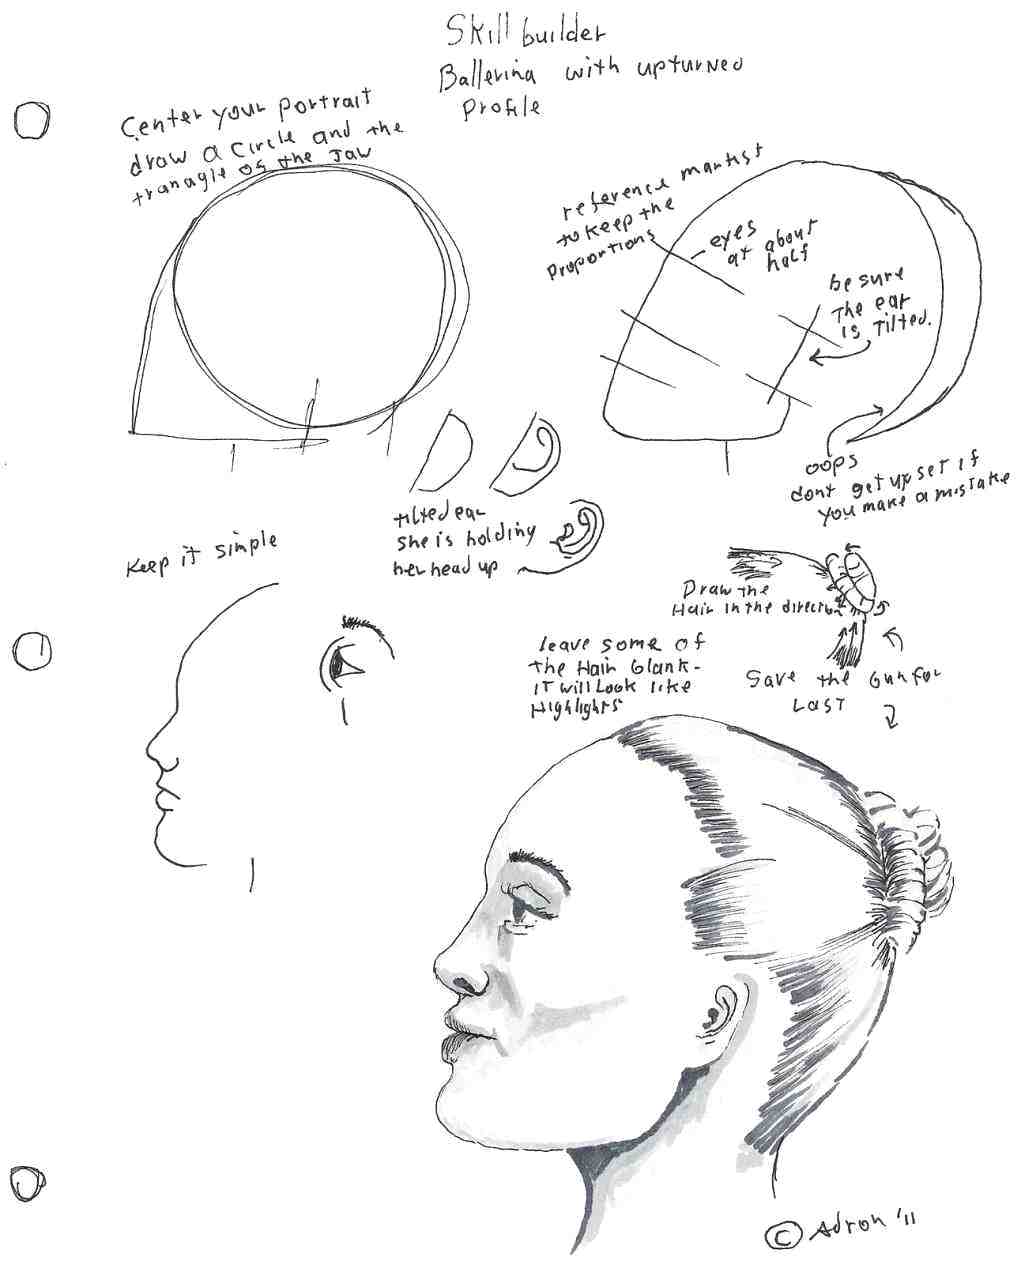 Skill builder
Ballerina with upturned
Profile
Center your portrait
draw a circle and the
tranagle of the Jaw
reference marktist
to keep the
proportions
eyes
at about
half
be sure
The ear
is Tilted.
oops
dont get upset if
you make a mistake
tilted ear
she is holding
her head up
Keep it simple
Draw the
Hair in the direction
leave some of
the Hair blank-
IT will Look like
Highlights
Save the bun for
LAST
© Adron '11